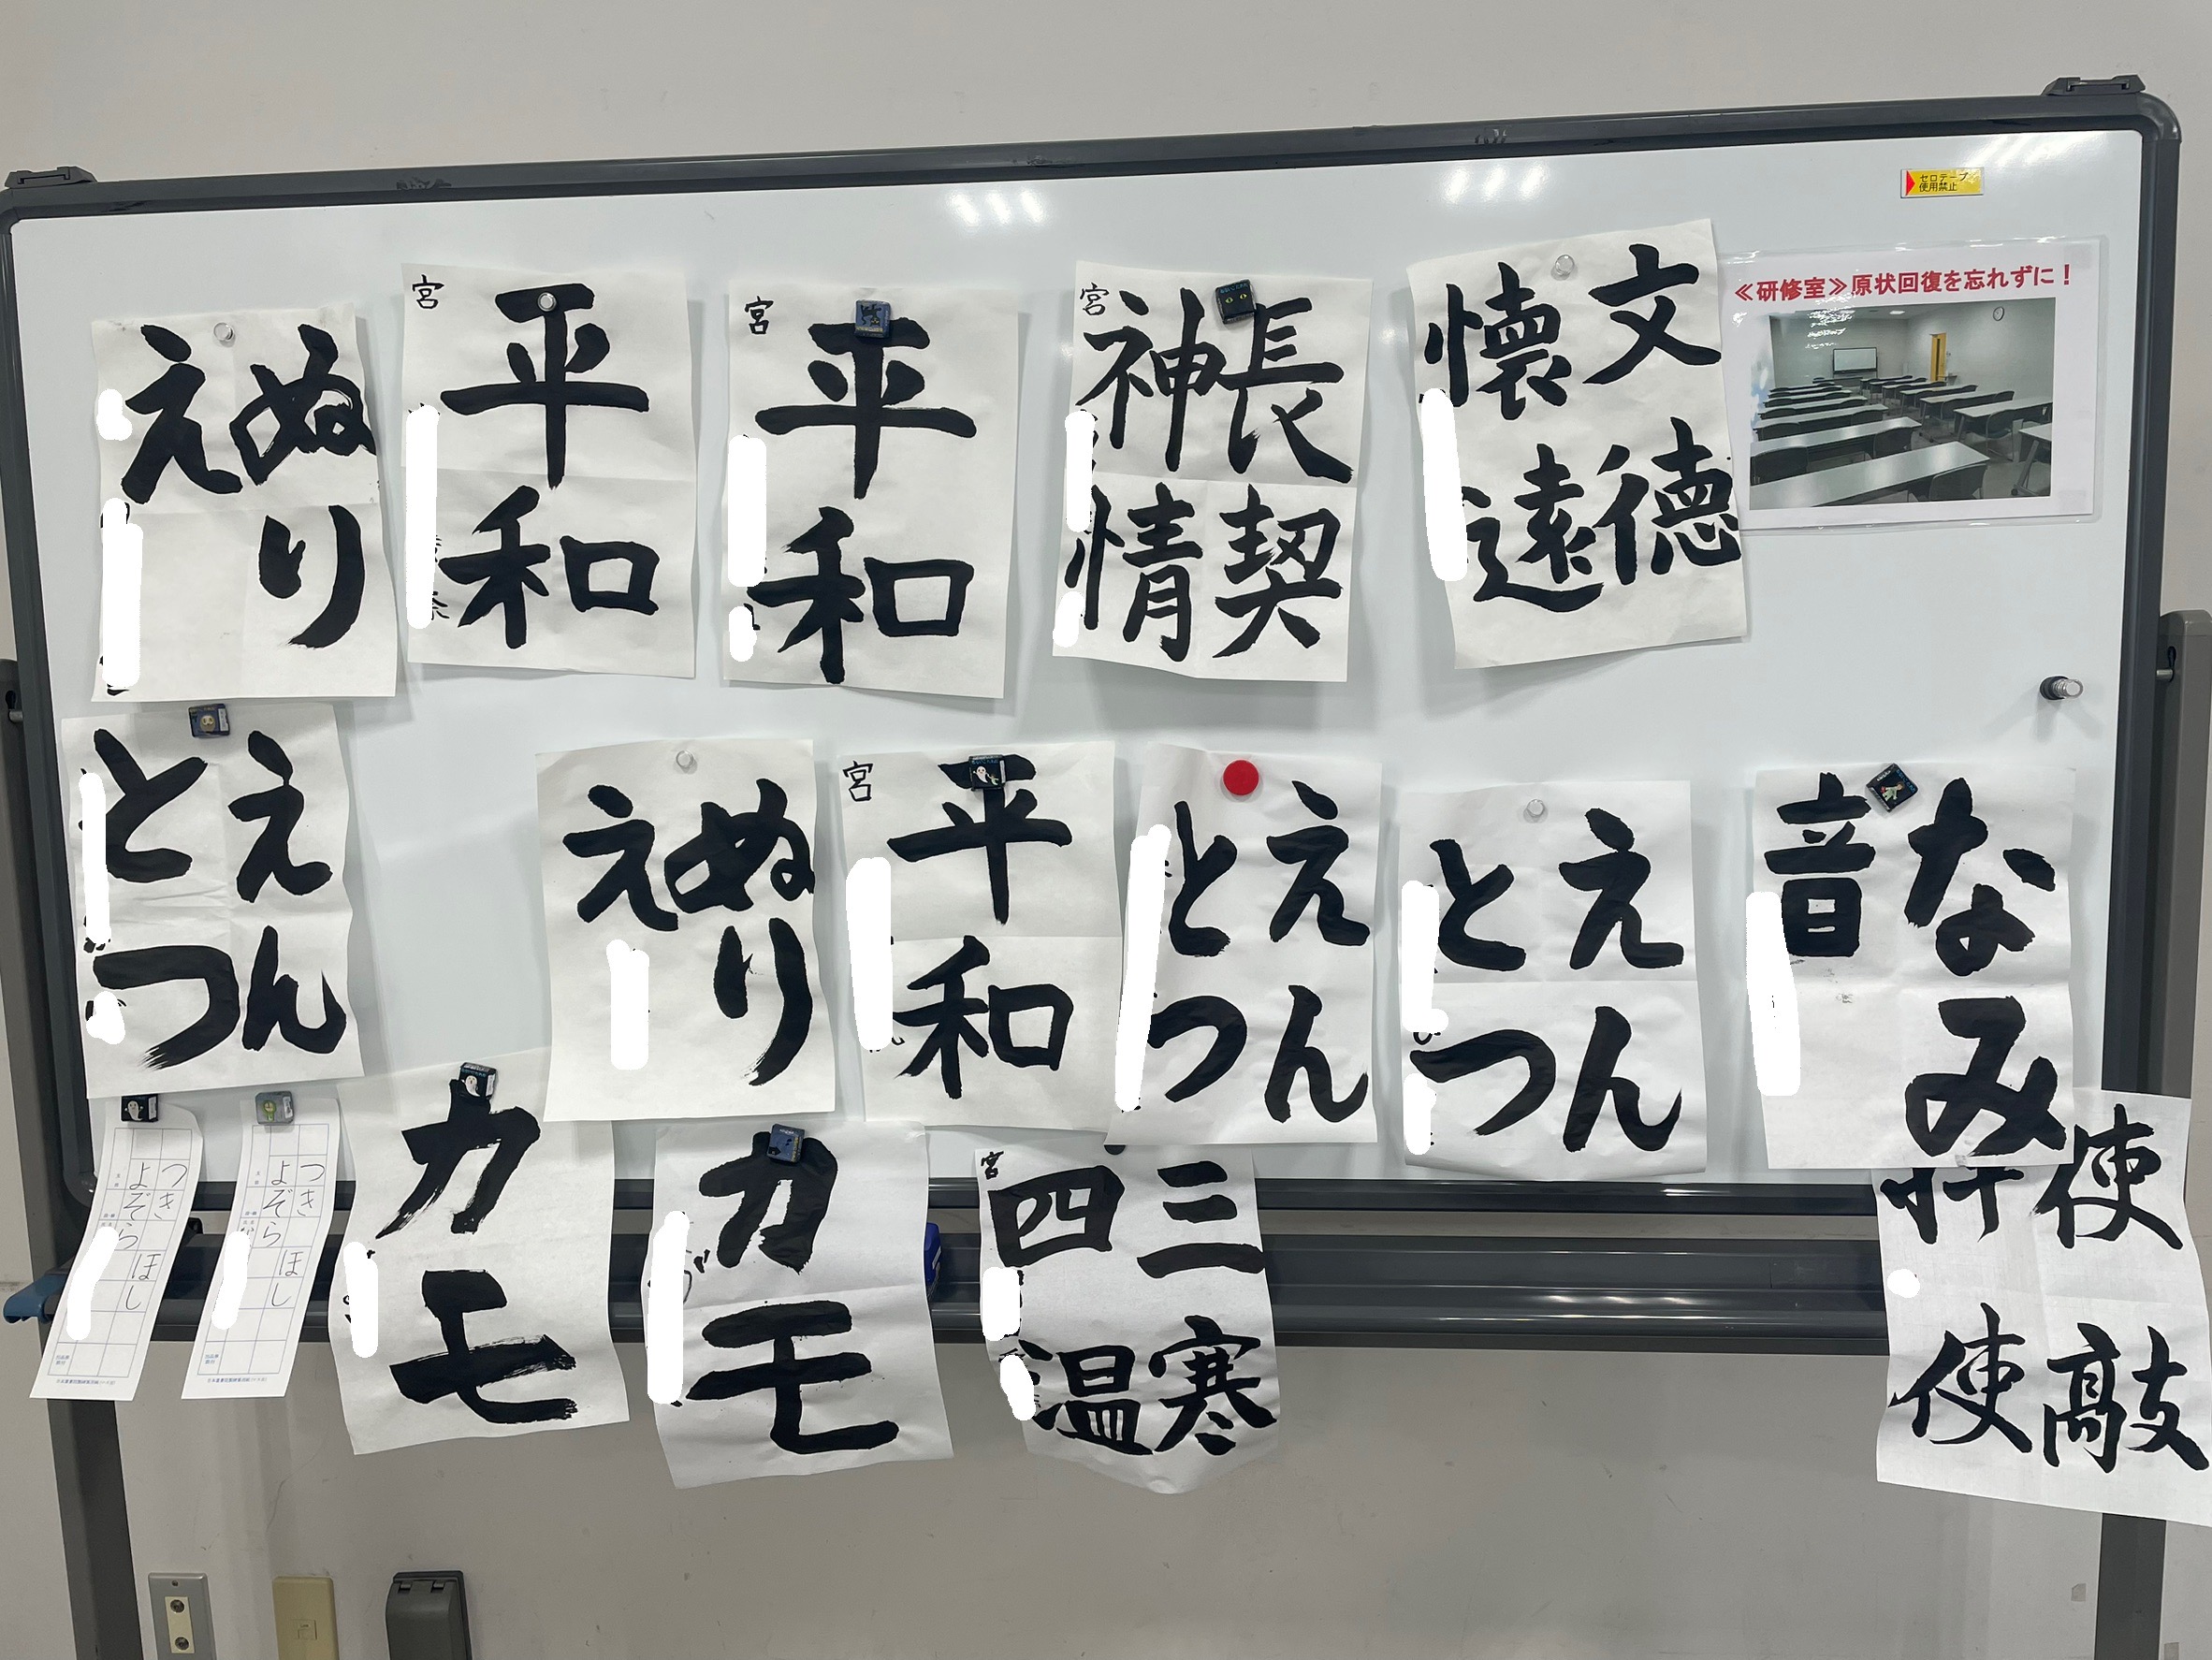 セロテープ
使用禁止
≪研修室≫原状回復を忘れずに！
文徳
懐遠
宮
長契
神情
宮
平和
宮
平和
ぬり
え
なみ
音
えん
とつ
えん
とつ
宮
平和
ぬり
え
えん
とつ
使敲
使
宮
三寒
四温
カモ
カモ
つき
よぞら
ほし
つき
よぞら
ほし